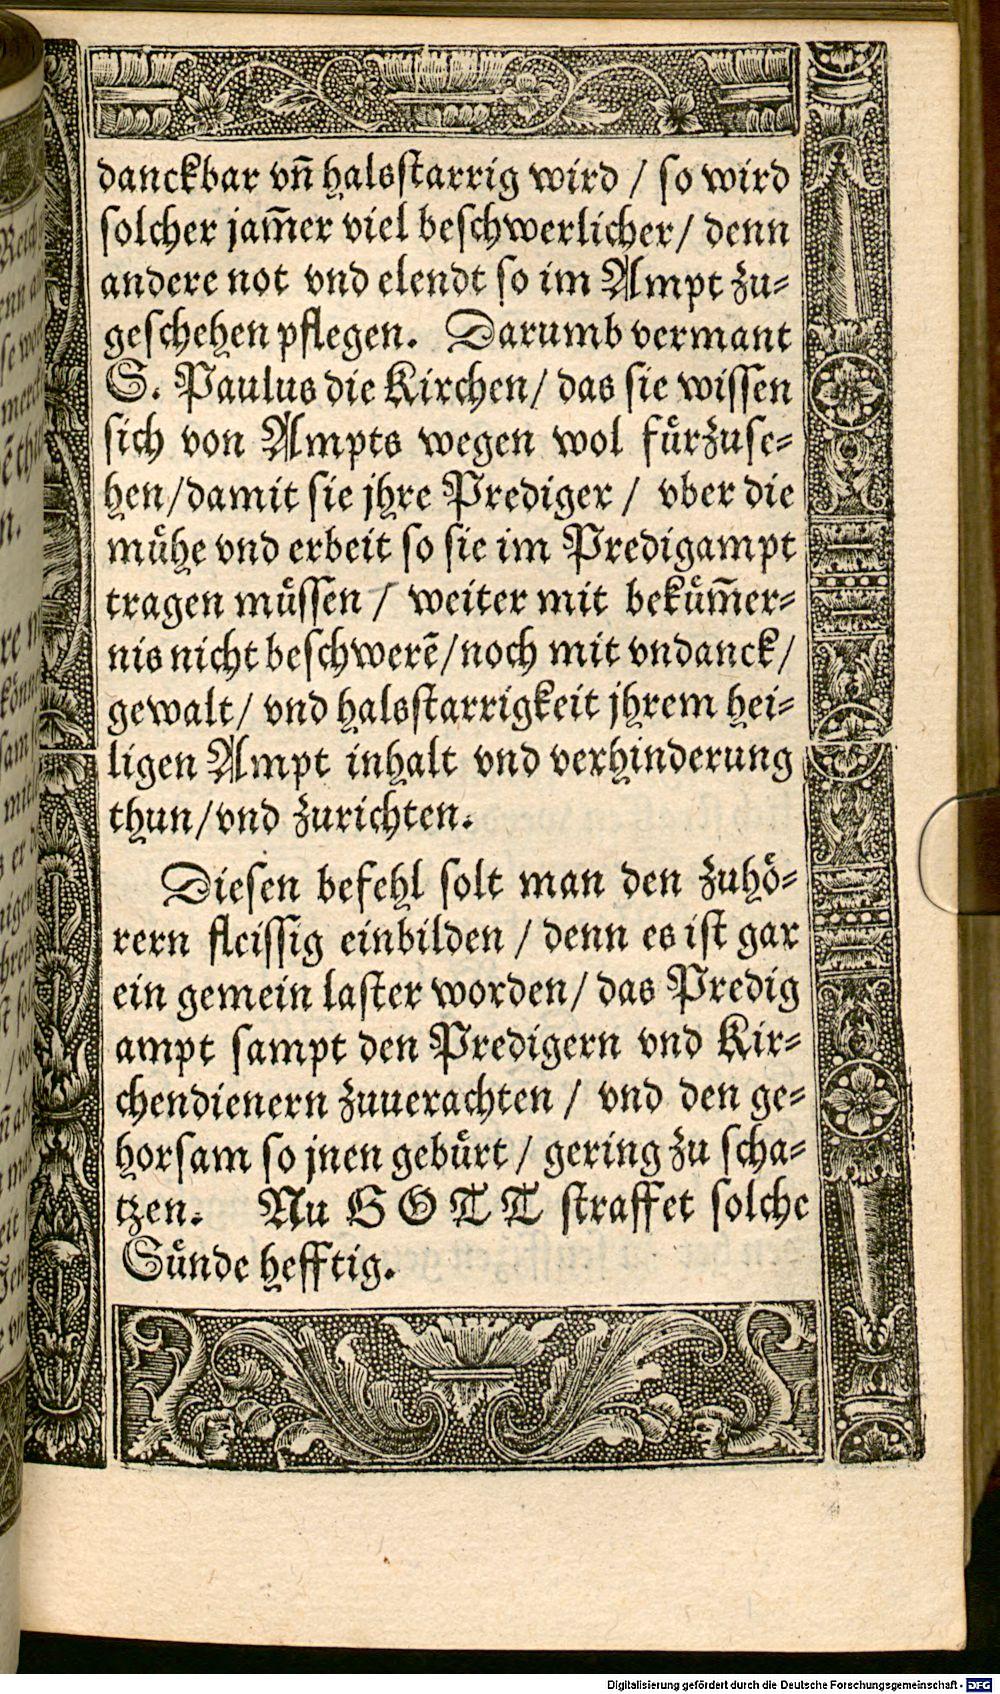 danckbar vñ halsstarrig wird / so wird
solcher jam̃er viel beschwerlicher / denn
andere not vnd elendt so im Ampt zu-
geschehen pflegen. Darumb vermant
S. Paulus die Kirchen / das sie wissen
sich von Ampts wegen wol fürzuse-
hen / damit sie jhre Prediger / vber die
mühe vnd erbeit so sie im Predigampt
tragen müssen / weiter mit beküm̃er-
nis nicht beschwerẽ / noch mit vndanck /
gewalt / vnd halsstarrigkeit jhrem hei-
ligen Ampt inhalt vnd verhinderung
thun / vnd zurichten.
Diesen befehl solt man den zuhö-
rern fleissig einbilden / denn es ist gar
ein gemein laster worden / das Predig
ampt sampt den Predigern vnd Kir-
chendienern zuuerachten / vnd den ge-
horsam so jnen gebürt / gering zu scha-
tzen. Nu GOTT straffet solche
Sünde hefftig.
Digitalisierung gefördert durch die Deutsche Forschungsgemeinschaft - DFG